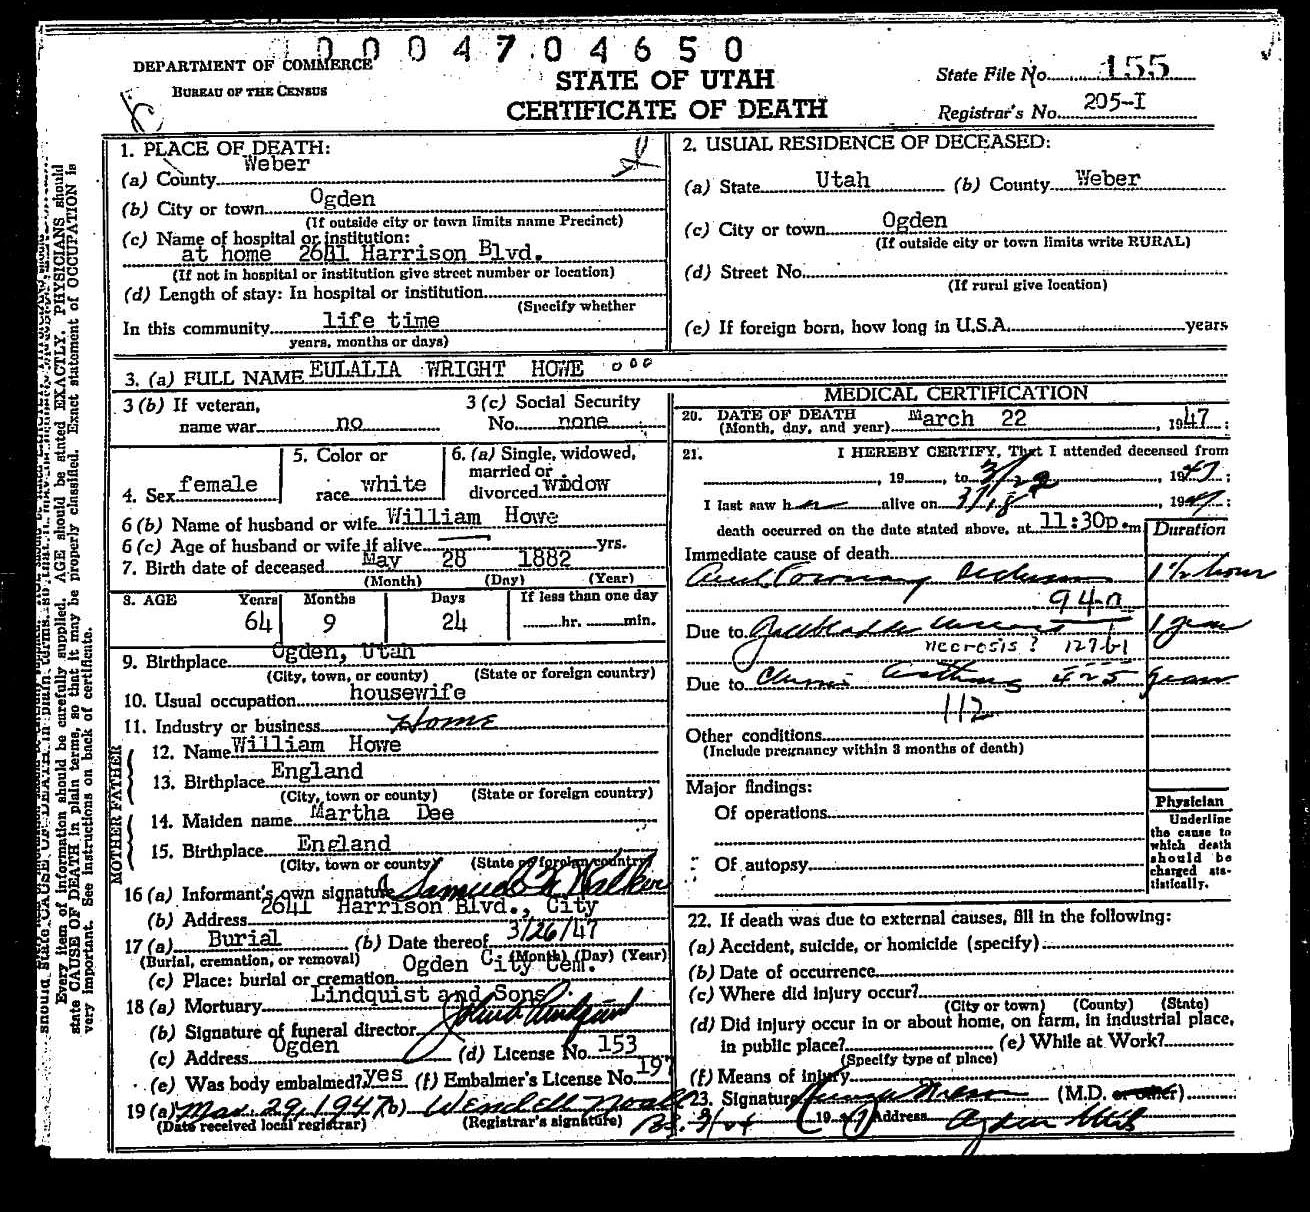 0004704650
DEPARTMENT OF COMMERCE
BUREAU OF THE CENSUS
STATE OF UTAH
CERTIFICATE OF DEATH
State File No. 155
Registrar's No. 205-I
1. PLACE OF DEATH:
(a) County Weber
(b) City or town Ogden
(If outside city or town limits name Precinct)
(c) Name of hospital or institution:
at home 2641 Harrison Blvd.
(If not in hospital or institution give street number or location)
(d) Length of stay: In hospital or institution
(Specify whether
In this community life time
years, months or days)
2. USUAL RESIDENCE OF DECEASED:
(a) State Utah (b) County Weber
(c) City or town Ogden
(If outside city or town limits write RURAL)
(d) Street No.
(If rural give location)
(e) If foreign born, how long in U.S.A. years
3. (a) FULL NAME EULALIA WRIGHT HOWE ooo
3 (b) If veteran, name war no
3 (c) Social Security No. none
4. Sex female
5. Color or race white
6. (a) Single, widowed, married or divorced widow
6 (b) Name of husband or wife William Howe
6 (c) Age of husband or wife if alive yrs.
7. Birth date of deceased May 28 1882
(Month) (Day) (Year)
8. AGE Years Months Days If less than one day
64 9 24 hr. min.
9. Birthplace Ogden, Utah
(City, town, or county) (State or foreign country)
10. Usual occupation housewife
11. Industry or business Home
FATHER
12. Name William Howe
13. Birthplace England
(City, town or county) (State or foreign country)
MOTHER
14. Maiden name Martha Dee
15. Birthplace England
(City, town or county) (State or foreign country)
16 (a) Informant's own signature Samuel Walker
(b) Address 2641 Harrison Blvd., City
17 (a) Burial (b) Date thereof 3/26/47
(Burial, cremation, or removal) (Month) (Day) (Year)
(c) Place: burial or cremation Ogden City Cem.
18 (a) Mortuary Lindquist and Sons
(b) Signature of funeral director Lindquist
(c) Address Ogden (d) License No. 153
(e) Was body embalmed? yes (f) Embalmer's License No. 197
19 (a) Mar. 29, 1947 (b) Wendell Noall
(Date received local registrar) (Registrar's signature)
MEDICAL CERTIFICATION
20. DATE OF DEATH
(Month, day, and year) March 22, 1947:
21. I HEREBY CERTIFY, That I attended deceased from
, 19 , to 3/22, 1947,
I last saw her alive on 3/18, 1947:
death occurred on the date stated above, at 11:30p.m
Duration
Immediate cause of death
Coronary 1½ hour
94-a
Due to Gall bladder 1 year
necrosis? 127b1
Due to Chronic asthma 425 years
112
Other conditions
(Include pregnancy within 3 months of death)
Major findings:
Of operations
Of autopsy
Physician
Underline
the cause to
which death
should be
charged sta-
tistically.
22. If death was due to external causes, fill in the following:
(a) Accident, suicide, or homicide (specify)
(b) Date of occurrence
(c) Where did injury occur?
(City or town) (County) (State)
(d) Did injury occur in or about home, on farm, in industrial place,
in public place? (e) While at Work?
(Specify type of place)
(f) Means of injury
23. Signature (M.D. or other)
19 47 Address Ogden Utah
Every item of information should be carefully supplied. AGE should be stated EXACTLY. PHYSICIANS should
state CAUSE OF DEATH in plain terms, so that it may be properly classified. Exact statement of OCCUPATION is
very important. See instructions on back of certificate.